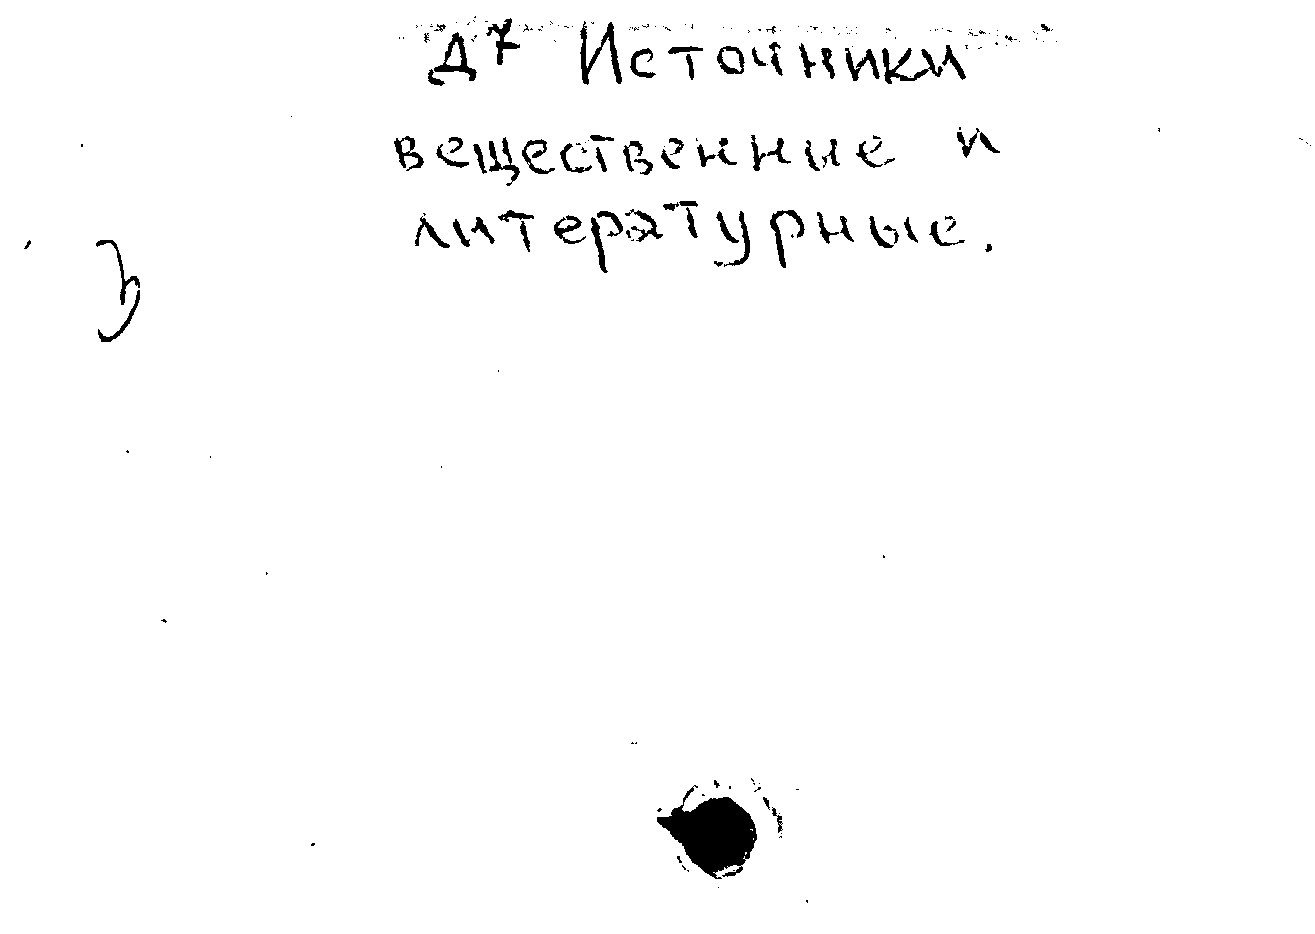 Д⁷ Источники
вещественные и
литературные.